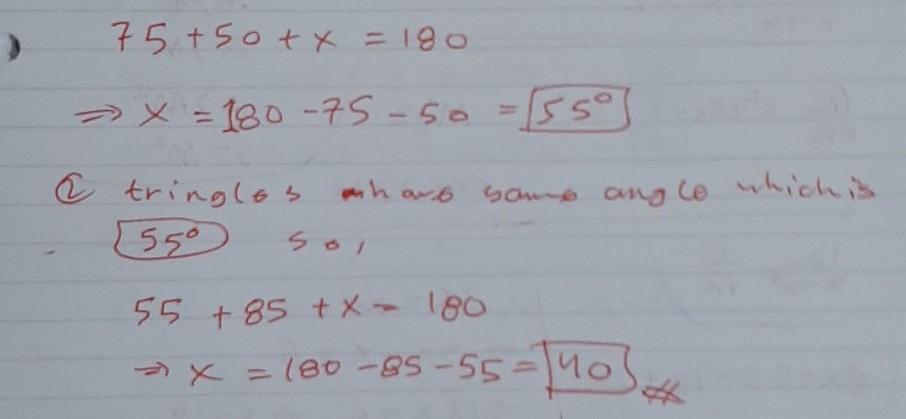 ) 75 + 50 + x = 180
⇒ x = 180 - 75 - 50 = 55°
② tringles have same angle which is
55° so,
55 + 85 + x = 180
⇒ x = 180 - 85 - 55 = 40